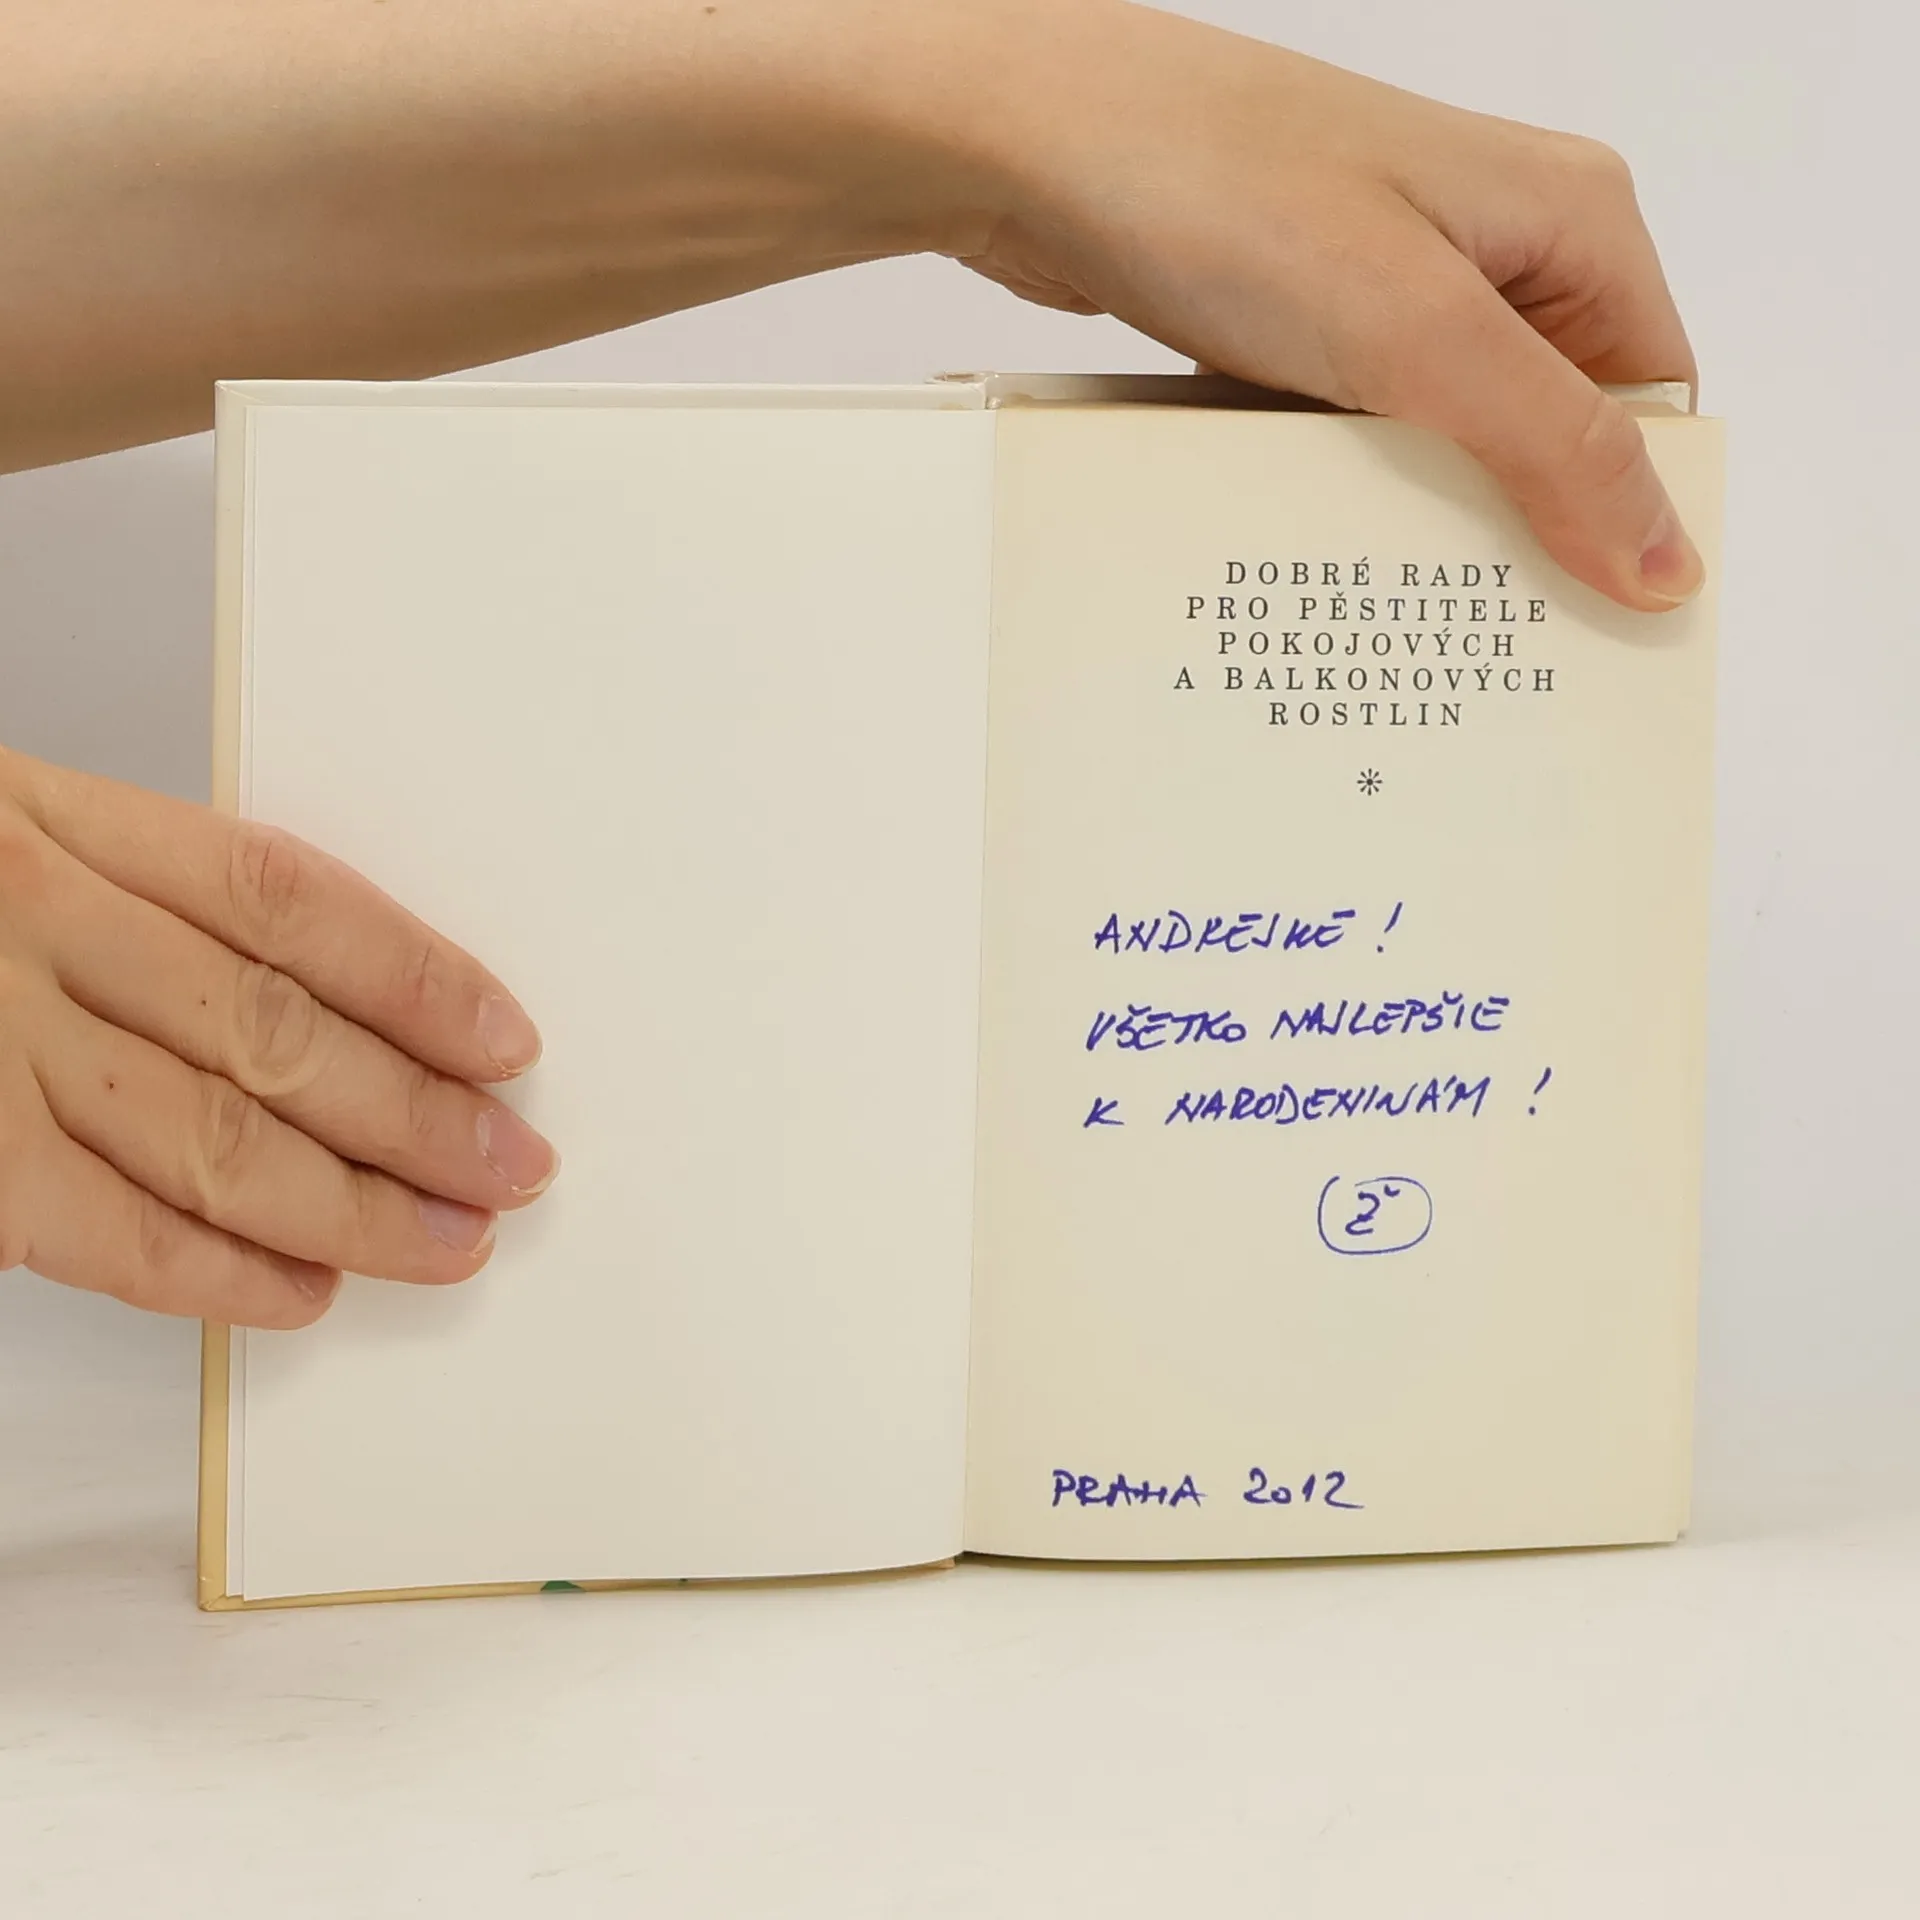 DOBRÉ RADY
PRO PĚSTITELE
POKOJOVÝCH
A BALKONOVÝCH
ROSTLIN
ANDREJKE !
VŠETKO NAJLEPŠIE
K NARODENINÁM !
Ž
PRAHA 2012